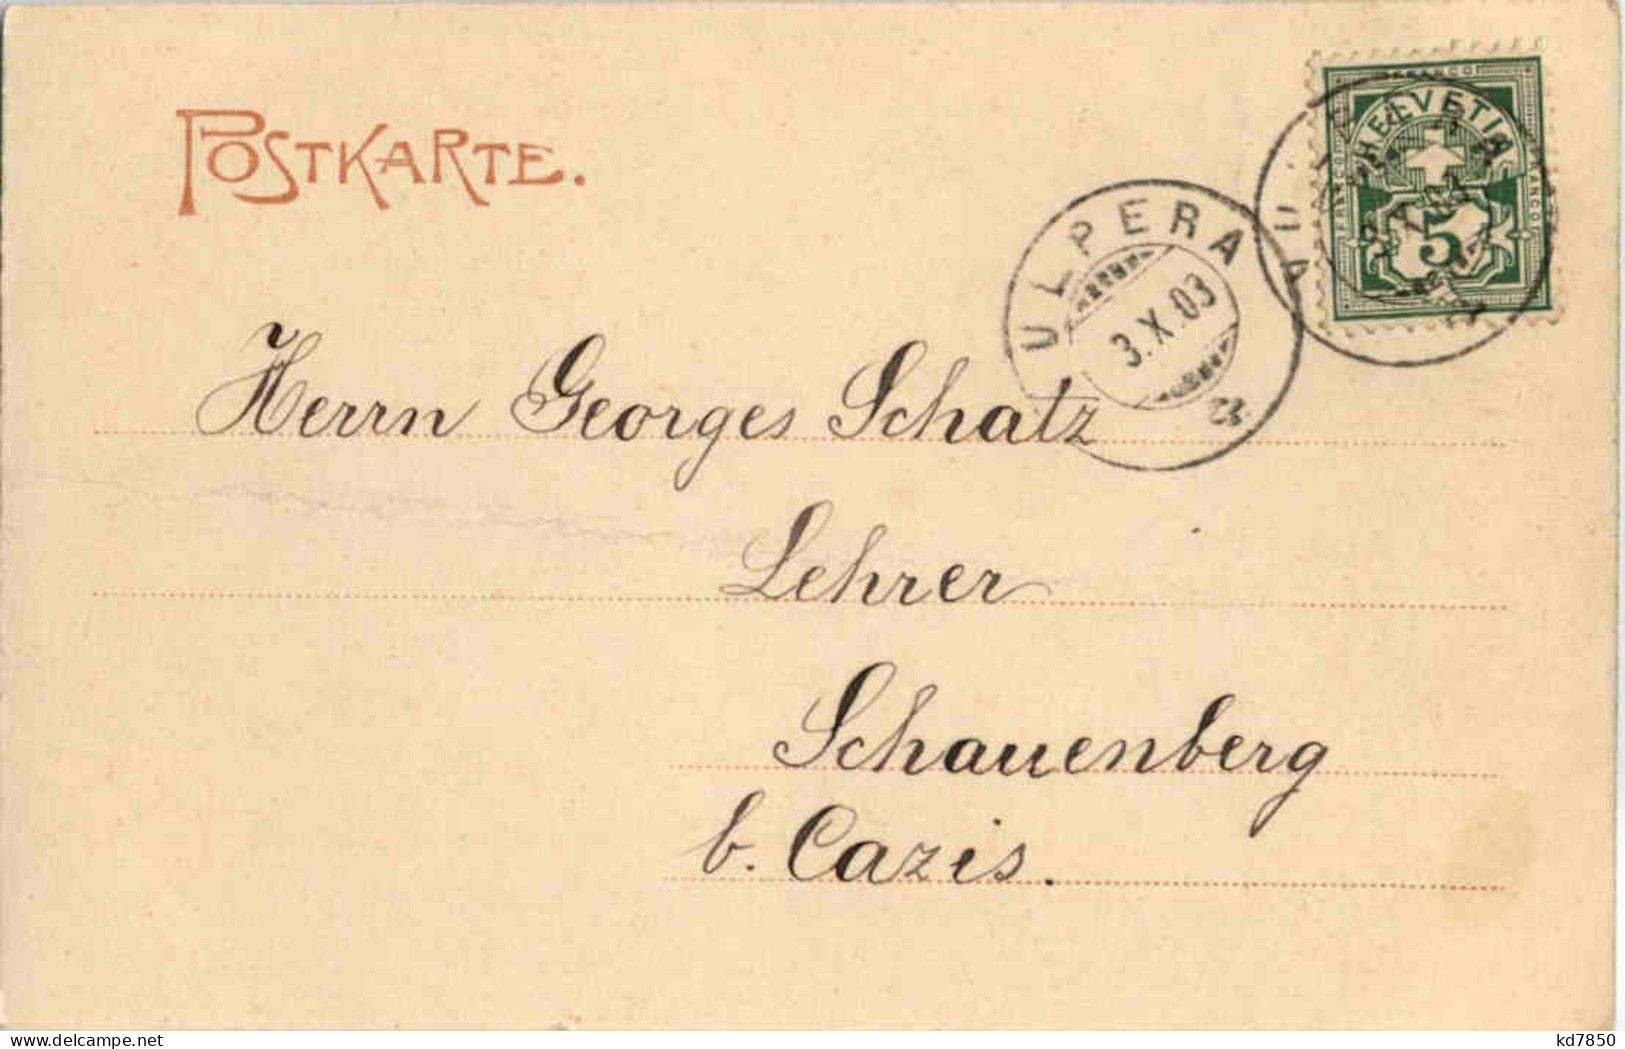 POSTKARTE.
FRANCO
HELVETIA
FRANCO
FRANCO
5
VULPERA
3.X.03
Herrn Georges Schatz
Lehrer
Schauenberg
b. Cazis.
kd7850